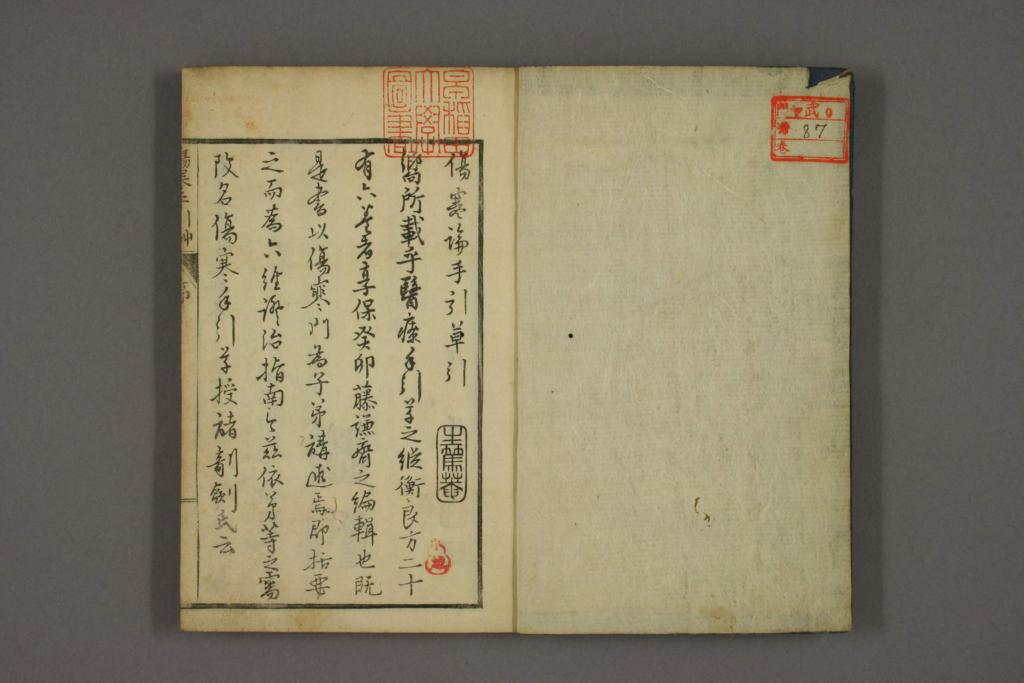 87
早稲田大學圖書
傷寒論手引草引
嚮所載乎醫療手引草之縱衡良方二十
有六卷者享保癸卯藤謙齋之編輯也既
是書以傷寒門為子弟講述焉即括要
之而為六經證治指南今茲依男等之需
改名傷寒手引草授諸剞劂氏云